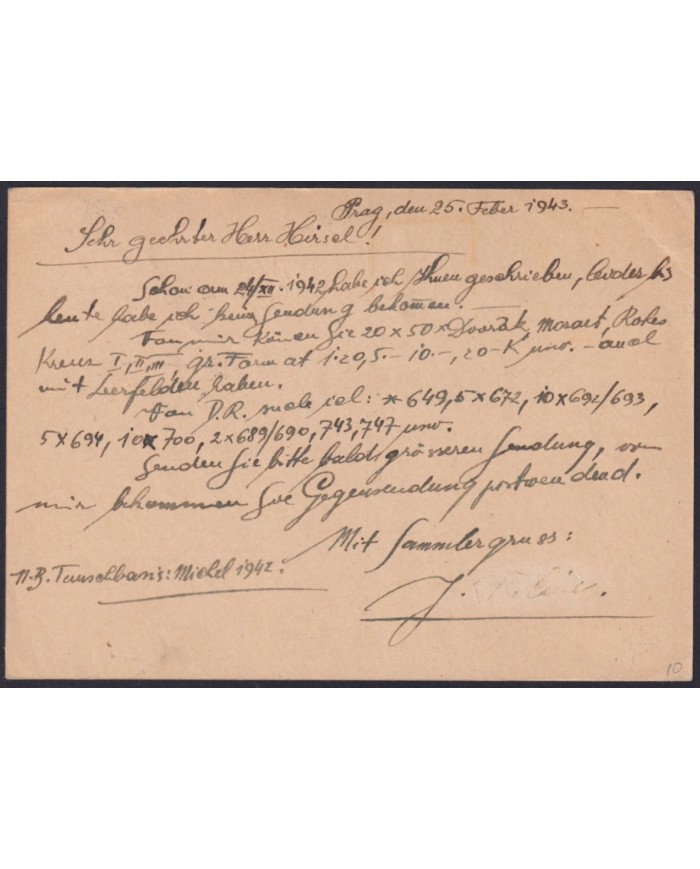 Prag, den 25. Feber 1943. —
Sehr geehrter Herr Hirsel!
Schon am 24/XII. 1942, habe ich Ihnen geschrieben, leider bis
heute habe ich keine Sendung bekommen. —
Von mir könen Sie 20 x 50 x Dvořák, Mozart, Rotes
Kreuz I, II, III, gr. Format 1·20, 5.- 10.-, 20-K usw. - auch
mit Leerfelden haben.
Von D.R. suche ich: * 649, 5 x 672, 10 x 692/693,
5 x 694, 10 x 700, 2 x 689/690, 743, 747 usw.
Senden Sie bitte bald grösseren Sendung, von
mir bekommen Sie Gegensendung postwendend.
Mit Sammlergruss:
N.B. Tauschbasis: Michel 1942.
J.
10